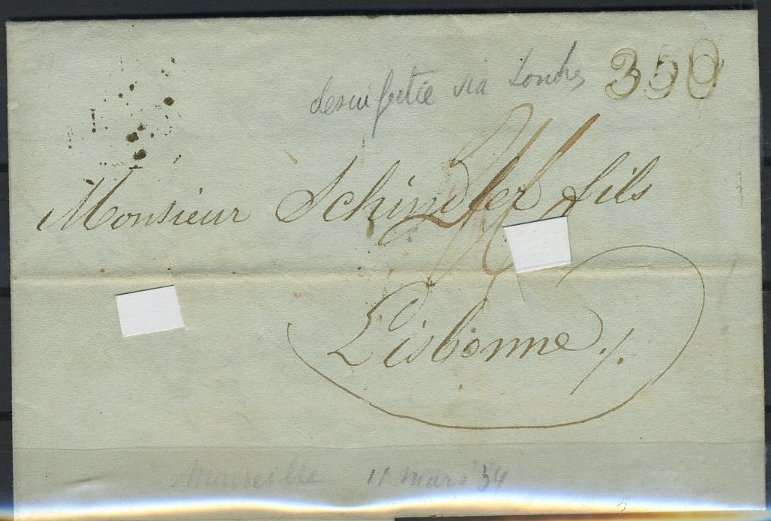 desinfectée via Londres
350
Monsieur Schindler fils
Lisbonne ./.
Marseille 11 mars 54